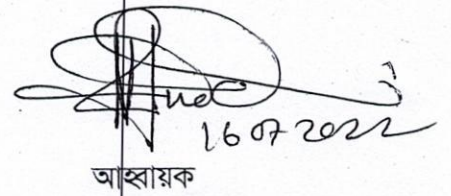 16 07 2022
আহ্বায়ক